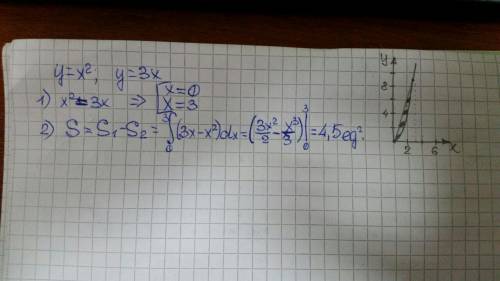 y=x²; y=3x
1) x²=3x ⇒ [x=0
x=3
2) S=S₁-S₂=∫₀³(3x-x²)dx=(3x²/2-x³/3)|₀³=4,5 eg².
y
8
4
2 6 x